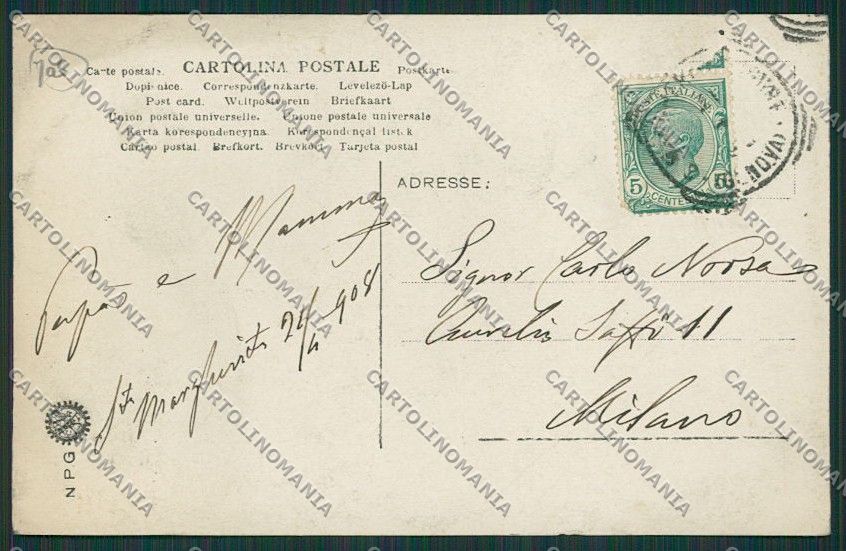 702
Carte postale. CARTOLINA POSTALE Postkarte
Dopisnice. Correspondenzkarte. Levelező-Lap
Post card. Weltpostverein Briefkaart
Union postale universelle. Unione postale universale
Karta korespondencyjna. Korespondençal listek
Cartao postal. Brefkort. Brevkort. Tarjeta postal
POSTE ITALIANE
5 CENTES 5
(GENOVA)
ADRESSE:
Papà e Mamma
Sta Margherita 21/4 908
Signor Carlo Noorsa
Aurelio Saffi 11
Milano
NPG
CARTOLINOMANIA